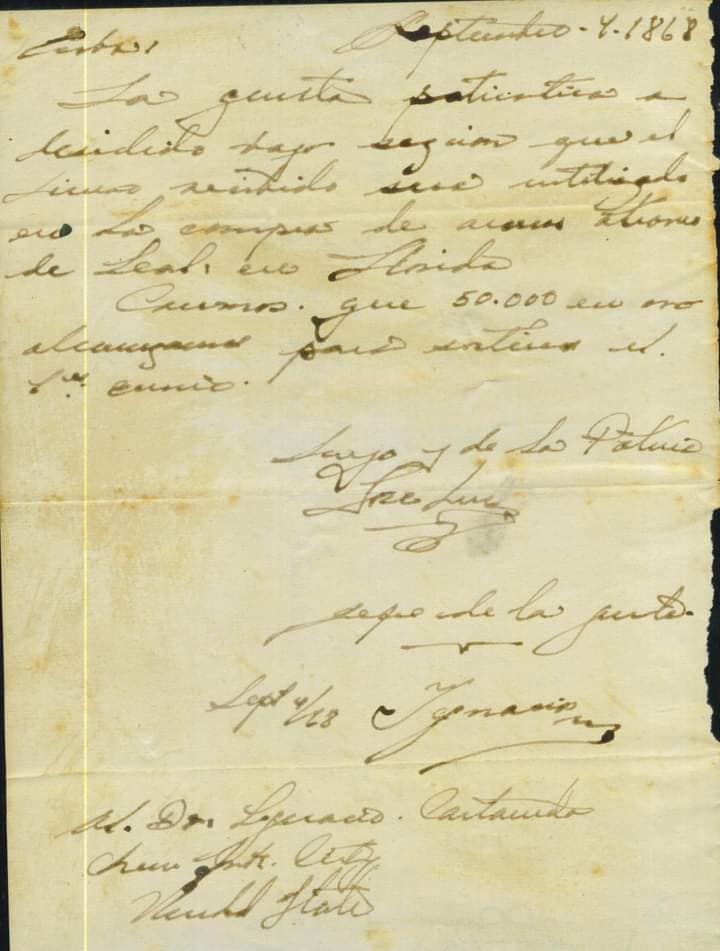 Cuba, Septiembre-4-1868
La gunta patriotica a
desidido bajo segcion que el
dinero recibido sea utilizado
en La compra de armas abordo
de Leal. en Florida
Creemos. que 50.000 en oro
alcanzaran para el
1er
Suyo y de La Patria
Jose Luis
gefe de la gunta.
Sept 4/68 Ygnacio
Al. Dr. Ygnacio. Castaneda
New York. City
United State